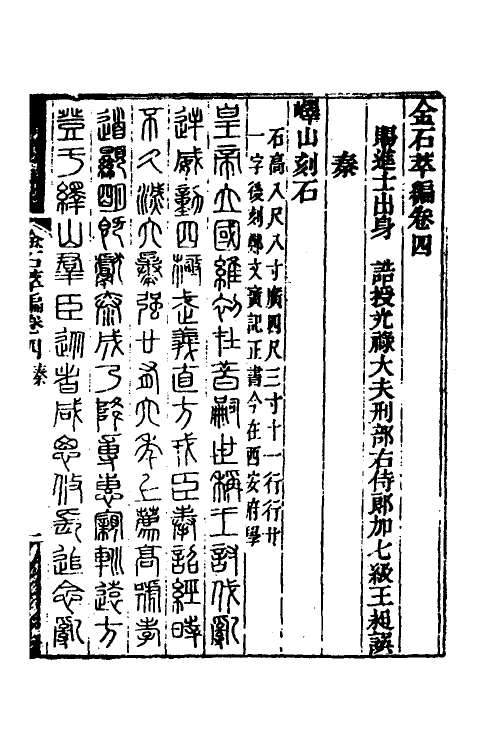 金石萃編卷四
賜進士出身 誥授光祿大夫刑部右侍郎加七級王昶譔
秦
嶧山刻石
石高八尺八寸廣四尺三寸十一行行廿
一字後刻鄭文寶記正書今在西安府學
皇帝立國維初在昔嗣世稱王討伐亂
逆威動四極武義直方戎臣奉詔經時
不久滅六暴強廿有六年上薦高號孝
道顯明既獻泰成乃降專惠寴䡅遠方
登于繹山羣臣從者咸思攸長追念亂
金石萃編卷四 秦 一